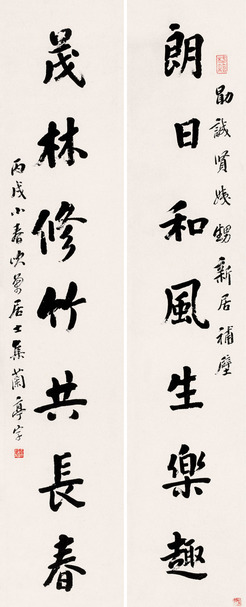 勗誠賢姨甥新居補壁
朗日和風生樂趣
茂林修竹共長春
丙戌小春吹萬居士集蘭亭字